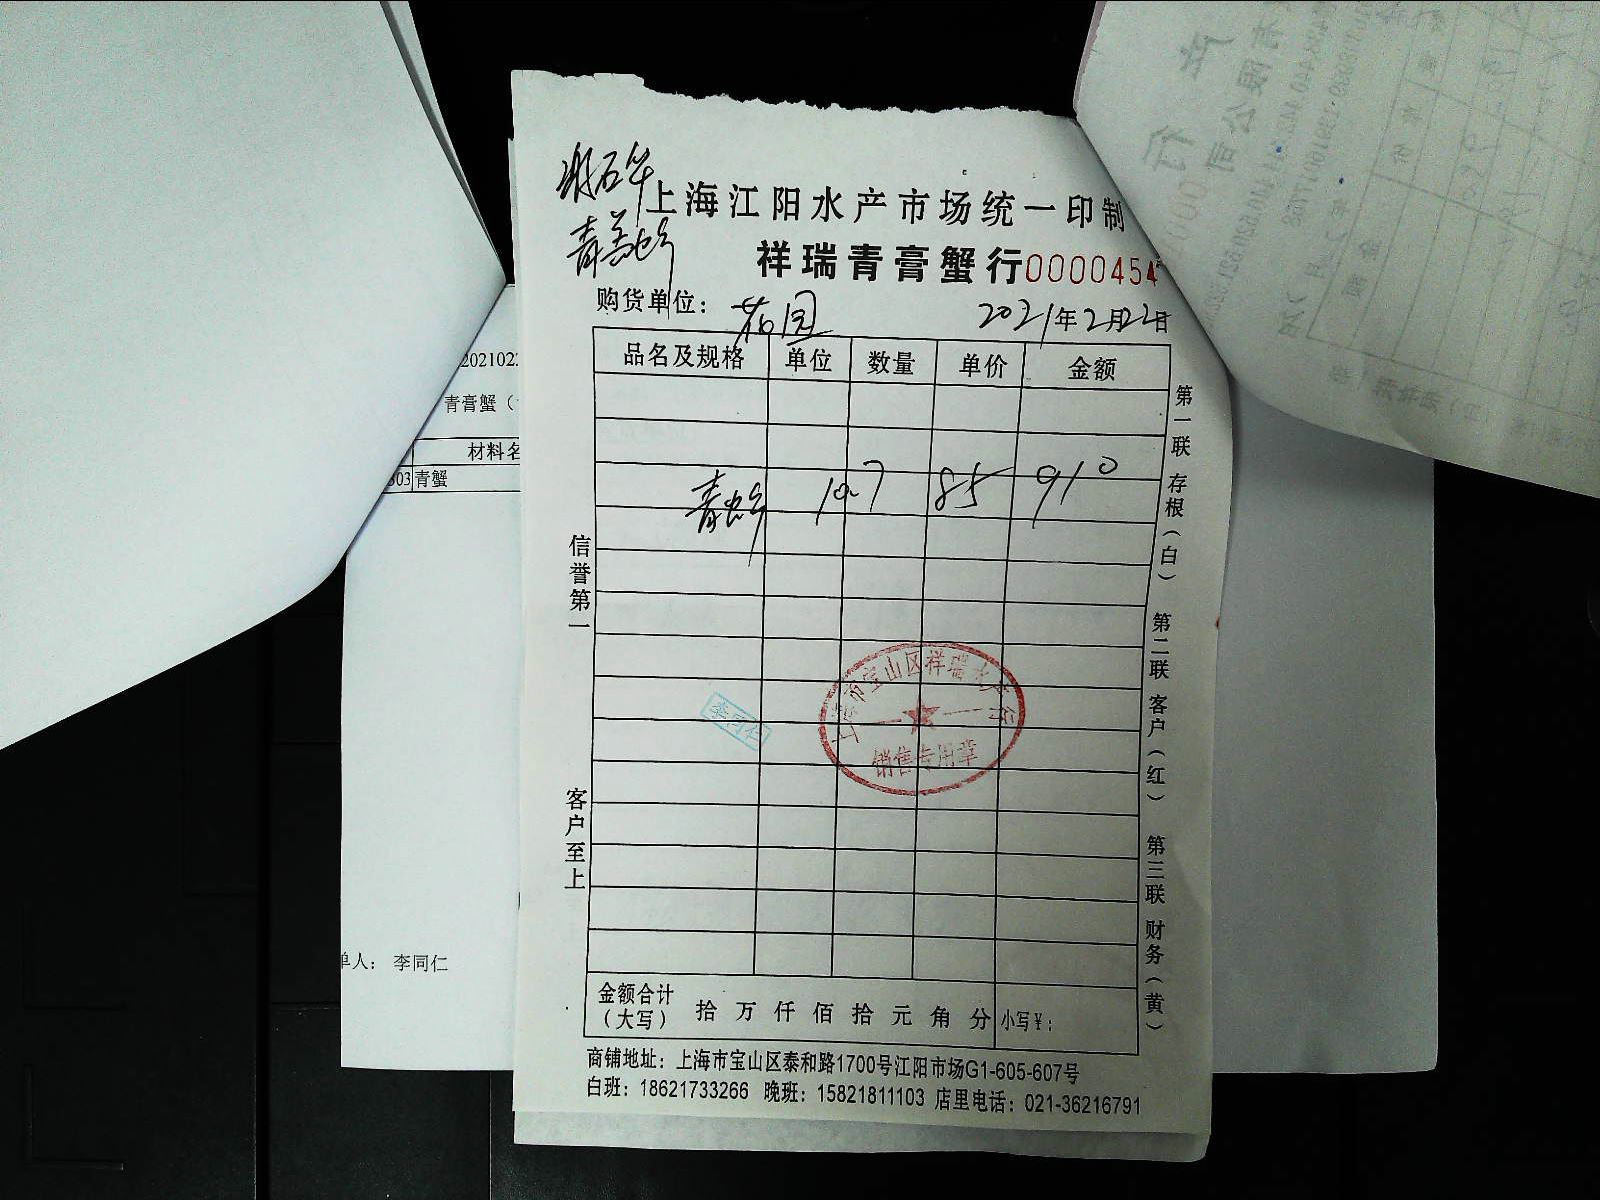 上海江阳水产市场统一印制
青羔蟹
祥瑞青膏蟹行0000454
购货单位： 花园 2021年2月22日
品名及规格 单位 数量 单价 金额
青蟹 10.7 85 910
信誉第一
客户至上
第一联 存根（白） 第二联 客户（红） 第三联 财务（黄）
李同仁
上海市宝山区祥瑞水产行
销售专用章
金额合计（大写） 拾 万 仟 佰 拾 元 角 分 小写¥：
商铺地址：上海市宝山区泰和路1700号江阳市场G1-605-607号
白班：18621733266 晚班：15821811103 店里电话：021-36216791
202102
青膏蟹（
材料名
503 青蟹
单人： 李同仁